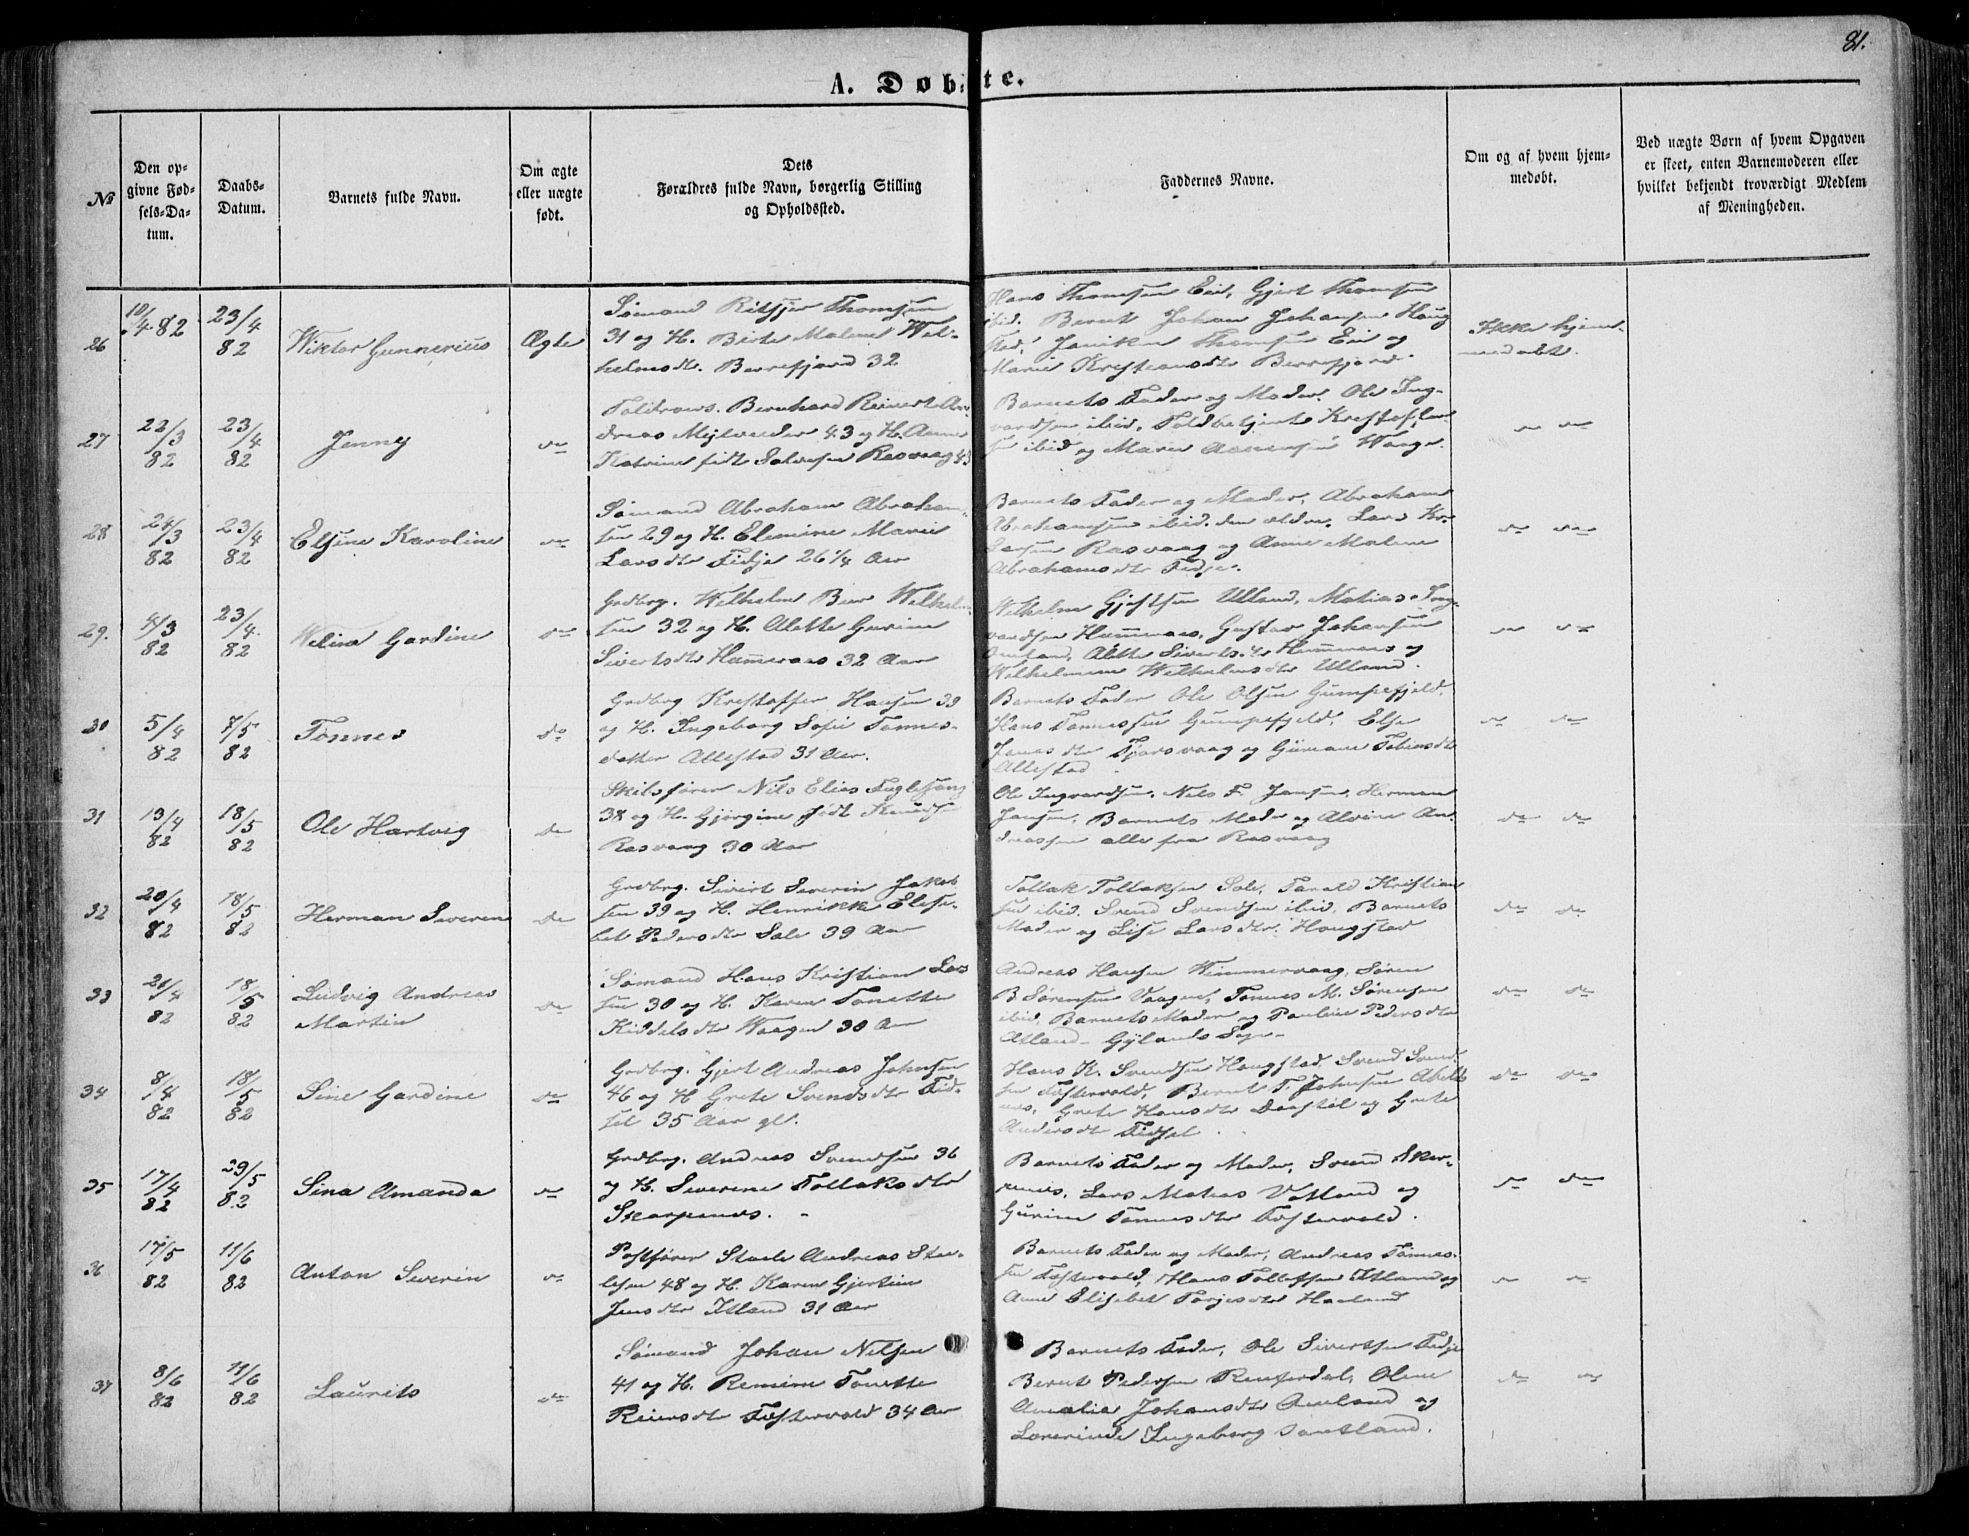 81.
A. Døbte.
№
Den op-
givne Fød-
sels-Da-
tum.
Daabs-
Datum.
Barnets fulde Navn.
Om ægte
eller uægte
født.
Dets
Forældres fulde Navn, borgerlig Stilling
og Opholdssted.
Faddernes Navne.
Om og af hvem hjem-
medøbt.
Ved uægte Børn af hvem Opgaven
er skeet, enten Barnemoderen eller
hvilket bekjendt troværdigt Medlem
af Menigheden.
26
10/4 82
23/4
82
Wiktor Gunnerius
Ægte
Sømand Thomsen
31 og H. Birte Malene Wil-
helmsdtr. Berrefjord 32
Hans Thomsen Eie, Gjert Thomsen
ibid. Bernt Johan Johansen Haug
sted, Thomsen Eie og
Marie Kristiansdtr Berrefjord.
Ikke hjem-
medøbt.
27
22/3
82
23/4
82
Jenny
do
Bernhard Reinert An-
dreas 43 og H. Anne
Katrine født Salvesen Rasvaag 43
Barnets Fader og Moder, Ole Ing-
vardsen ibid, Toldbetjent
ibid og Maren Waage.
do do
28
24/3
82
23/4
82
Elsine Karoline
do
Sømand Abraham Abraham-
sen 29 og H. Elemine Marie
Larsdtr Fidje 26 1/4 Aar
Barnets Fader og Moder, Abraham
Abrahamsen ibid. den ældre, Lars Kr.
Larsen Rasvaag og Anne Malene
Abrahamsdtr Fedje.
do do
29.
4/3
82
23/4
82
Gardine
do
Grdbrg. Wilhelm Wilhelm-
sen 32 og H. Alette Gurine
Sivertsdtr Hameraas 32 Aar
Wilhelm Ulland, Matias Ing-
vardsen Hameraas, Gustav Johansen
Omland, Alette Sivertsdtr Hameraas og
Wilhelmine Wilhelmsdtr Ulland.
do do
30
5/4
82
7/5
82
Tønnes
do
Grdbrg Kristoffer Hansen 39
og H. Ingeborg Sofie Tønnes-
datter Allestad 31 Aar.
Barnets Fader Ole Olsen Gumpefjeld.
Hans Tønnessen Gumpefjeld, Else
Tjørsvaag og Tobiasdtr
Allestad
do do
31
13/4
82
18/5
82
Ole Hartvig
do
Skibsfører Nils Elias Fuglesang
38 og H. Gjørgine født Knudsen
Rasvaag 30 Aar
Ole Ingvardsen, Nils F. Jansen, Herman
Jansen, Barnets Moder og Alvine An-
dreassen alle fra Rasvaag
do do
32
20/4
82
18/5
82
Herman Severin
do
Grdbrg. Sivert Severin Jakob
sen 39 og H. Henrikke Elise-
bet Pedersdtr Sole 39 Aar
Tollak Tollaksen Sole, Tarald Kristian
sen ibid. Svend Svendsen ibid, Barnets
Moder og Lise Larsdtr. Haugstad
do do
33
20/4
82
18/5
82
Ludvig Andreas
Martin
do
Sømand Hans Kristian Lar
sen 30 og H. Karen Tonette
Kiddelsdtr Waagen 30 Aar
Andreas Hansen Wimmervaag, Søren
B Sørensen Vaagen, Tønnes M. Sørensen
ibid, Barnets Moder og Pauline Pedersdtr
Atland - Gylands Sogn -
do do
34
8/4
82
18/5
82
Sine Gardine
do
Grdbrg. Gjert Andreas Johnsen
46 og H Grete Svendsdtr Fid-
sel 35 Aar gl.
Hans K. Svendsen Haugstad, Svend Svend
sen Fostervold, Bernt T. Johnsen
Grete Hansdtr og Grete
Andersdtr Fidsel.
do do
35
17/4
82
29/5
82
Sina Amanda
do
Grdbrg. Andreas Svendsen 36
og H. Severine Tollaksdtr
Skarpenes.
Barnets Fader og Moder, Svend Skar-
penes, Lars Matias og
Gurine Tønnesdtr Fostervold.
do do
36
17/5
82
11/6
82
Anton Severin
do
Postfører Staale Andreas Staa-
lesen 48 og H. Karen Gjertine
Jensdtr Itland 31 Aar
Barnets Fader og Moder, Andreas Tønnes-
sen Fostervold, Hans Tollefsen Itland og
Anne Elisebet Torjesdtr Haaland
do do
37
8/6
82
11/6
82
Laurits
do
Sømand Johan Nilsen
41 og H. Tonette
Reiersdtr Fostervold 34 Aar
Barnets Fader, Ole Sivertsen Fedje
Bernt Pedersen Olene
Amalie Johansdtr Omland og
Ingeborg
do do